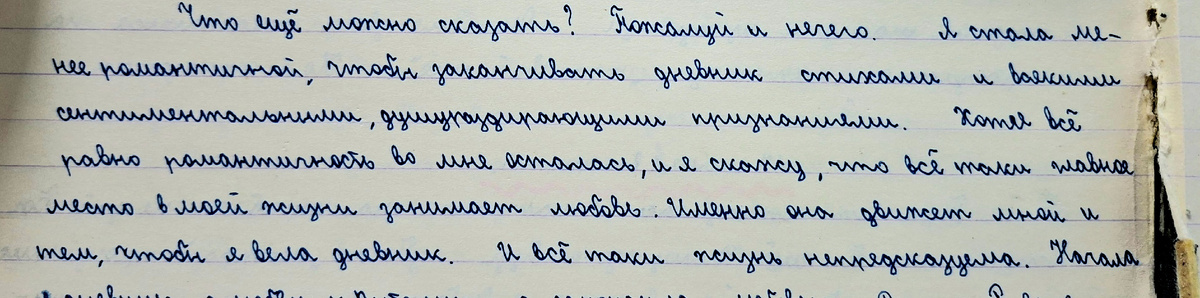 Что ещё можно сказать? Пожалуй и нечего. Я стала ме-
нее романтичной, чтобы заканчивать дневник стихами и всякими
сентиментальными, душураздирающими признаниями. Хотя всё
равно романтичность во мне осталась, и я скажу, что всё таки главное
место в моей жизни занимает любовь. Именно она движет мной и
тем, чтобы я вела дневник. И всё таки жизнь непредсказуема. Начала